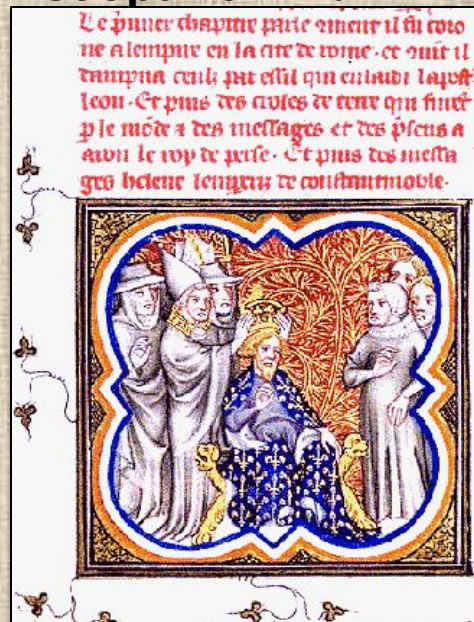 Le premier chapitre parle comment il fu coro
ne a lempire en la cite de rome. et comment il
dampna ceulz par essil qui
leon. Et puis des croles de terre qui furent
p le mōde et des messages et des p̄sens a
aron le roy de perse. Et puis des messa
ges helene lempereris de constantinoble.